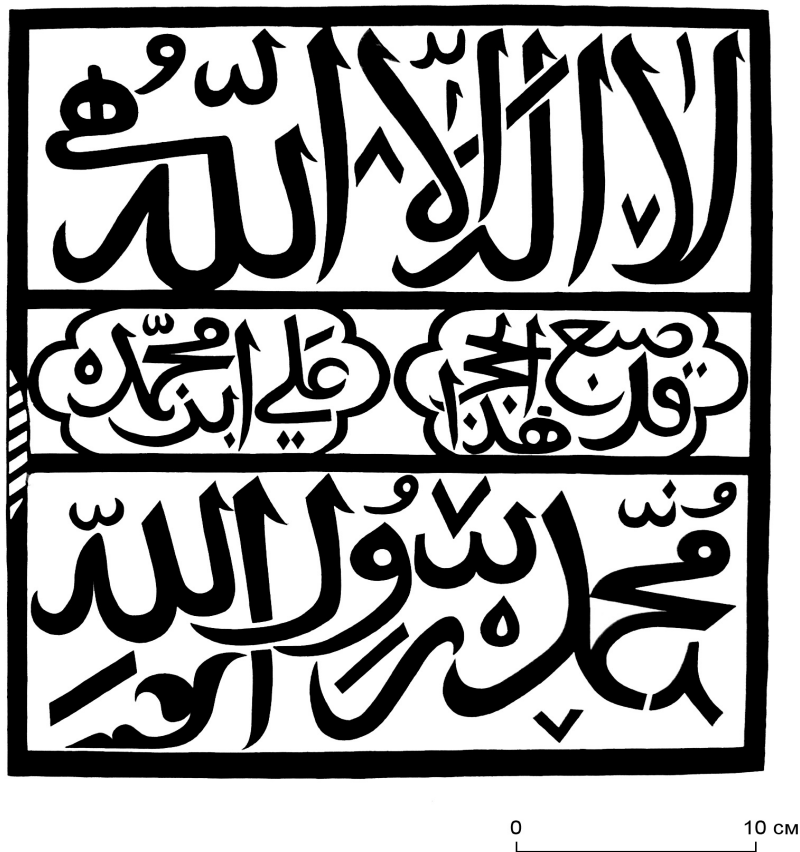 لا اله الا الله
قد صنع هذا الحجر
علي ابن محمد
محمد رسول الله
0 10 см